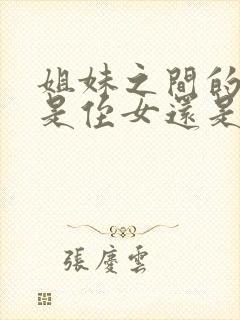 姐妹之間的
是侄女還是
張慶雲